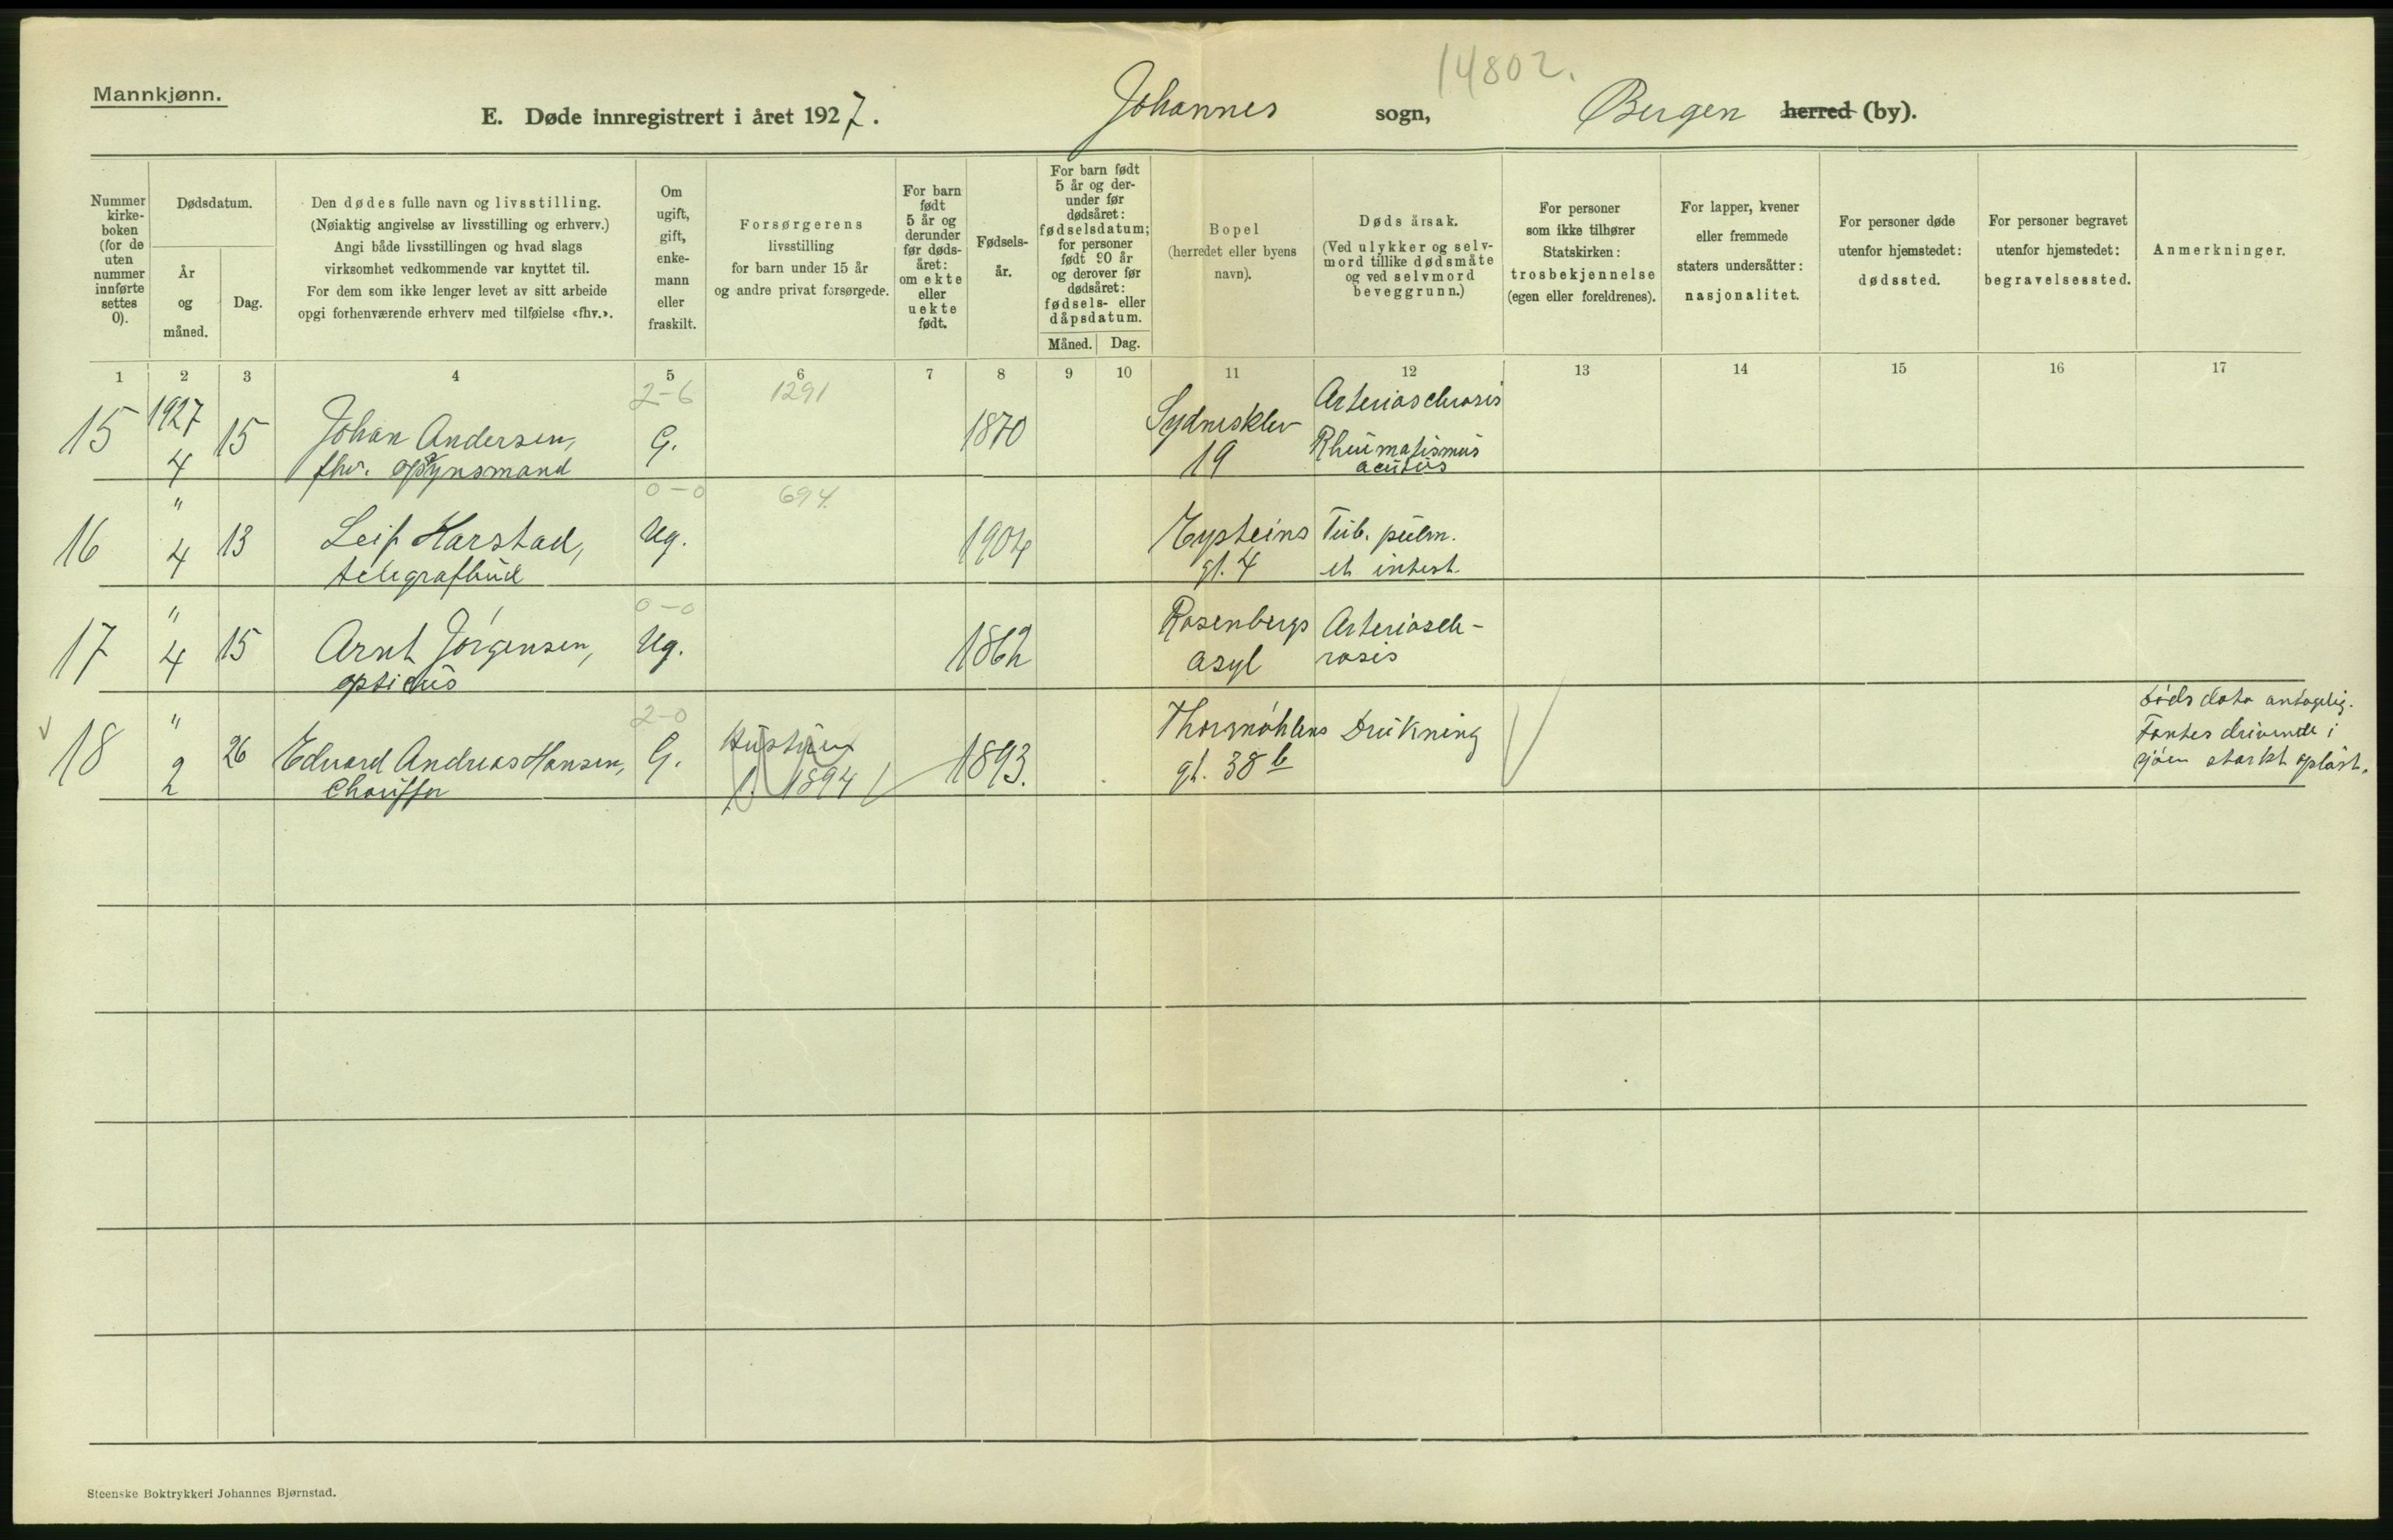 14802.
Mannkjønn.
E. Døde innregistrert i året 1927. Johannes sogn, Bergen herred (by).
Nummer kirke-boken (for de uten nummer innførte settes 0).
Dødsdatum.
År og måned.
Dag.
Den dødes fulle navn og livsstilling.
(Nøiaktig angivelse av livsstilling og erhverv.)
Angi både livsstillingen og hvad slags
virksomhet vedkommende var knyttet til.
For dem som ikke lenger levet av sitt arbeide
opgi forhenværende erhverv med tilføielse «fhv.».
Om ugift, gift, enke-mann eller fraskilt.
Forsørgerens
livsstilling
for barn under 15 år
og andre privat forsørgede.
For barn født 5 år og derunder før døds-året: om ekte eller uekte født.
Fødsels-år.
For barn født 5 år og der-under før dødsåret: fødselsdatum; for personer født 90 år og derover før dødsåret: fødsels- eller dåpsdatum.
Måned. Dag.
Bopel
(herredet eller byens
navn).
Døds årsak.
(Ved ulykker og selv-
mord tillike dødsmåte
og ved selvmord
beveggrunn.)
For personer
som ikke tilhører
Statskirken:
trosbekjennelse
(egen eller foreldrenes).
For lapper, kvener
eller fremmede
staters undersåtter:
nasjonalitet.
For personer døde
utenfor hjemstedet:
dødssted.
For personer begravet
utenfor hjemstedet:
begravelsessted.
Anmerkninger.
1 2 3 4 5 6 7 8 9 10 11 12 13 14 15 16 17
2-6 1291
15 1927 4 15 Johan Andersen, G. 1870 Sydnesklev 19 Arterioschrosis
fhv. opsynsmand Rheumatismus acutus
0-0 694.
16 " 4 13 Leif Harstad, Ug. 1904 Eysteins gt. 4 Tub. pulm.
telegrafbud et intest.
0-0
17 " 4 15 Arnt Jørgensen, Ug. 1862 Rosenbergs asyl Arterioscle-
opticus rosis
2-0
18 " 2 26 Edvard Andreas Hansen, G. Hustru f. 1894 1893. Thormøhlens gt. 38 b Drukning
Chauffør
Dødsdato antagelig.
Fantes drivende i
sjøen sterkt opløst.
Steenske Boktrykkeri Johannes Bjørnstad.